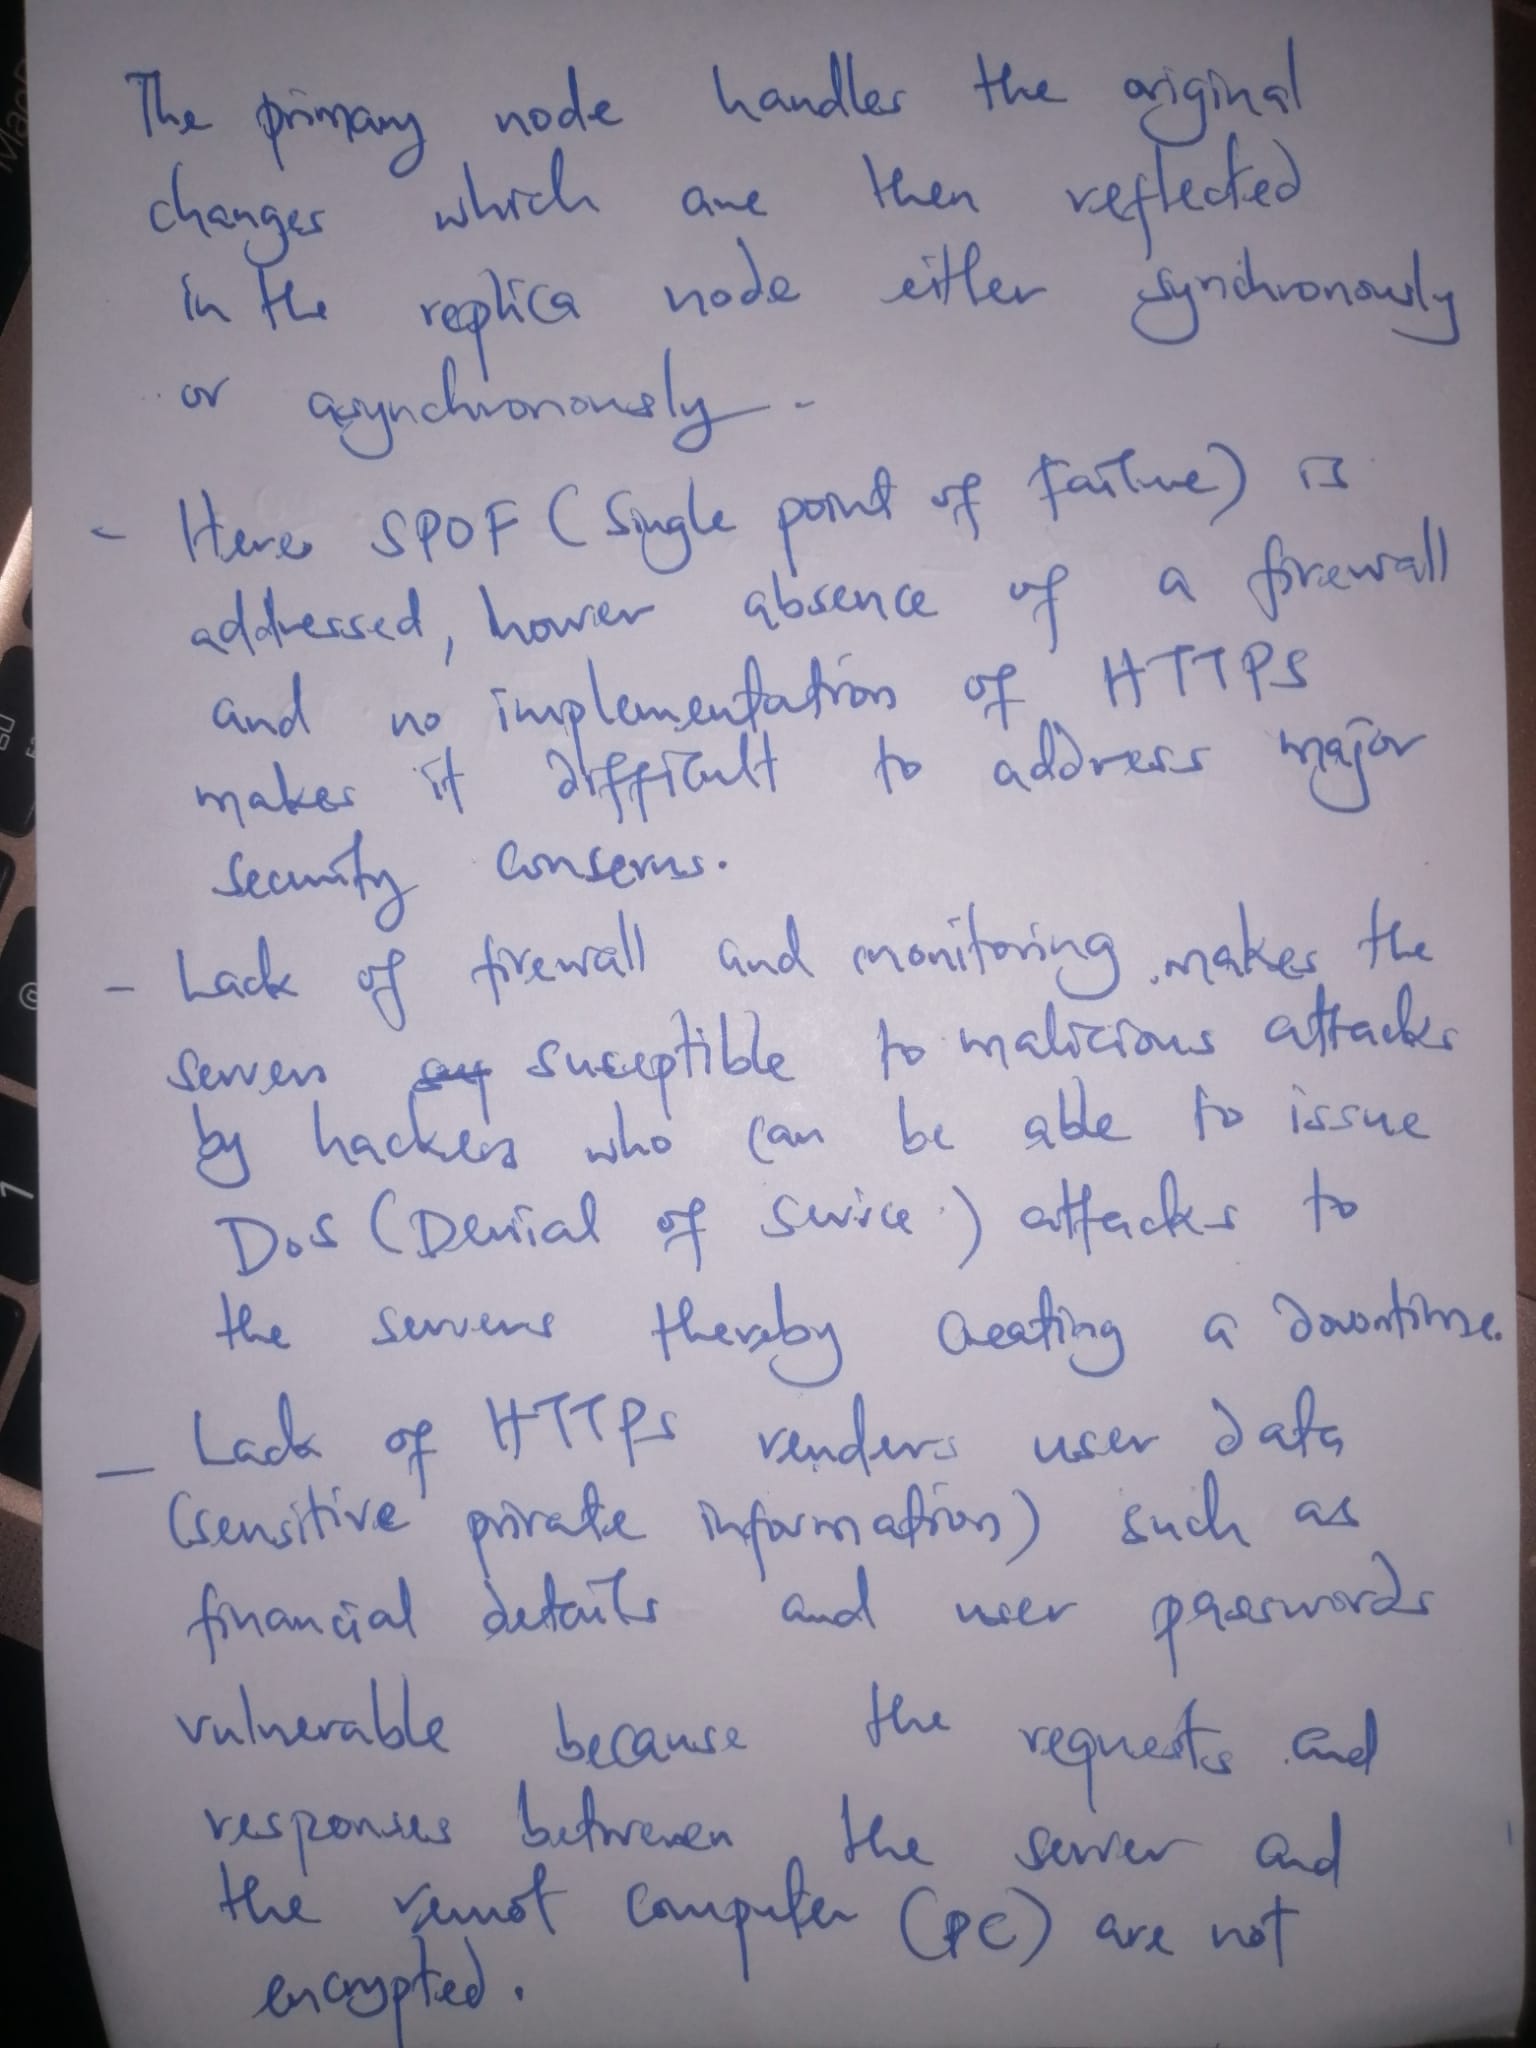 The primary node handles the original
changes which are then reflected
in the replica node either synchronously
or asynchronously.
- Here SPOF (Single point of Failure) is
addressed, hower absence of a firewall
and no implementation of HTTPS
makes it difficult to address major
security conserns.
- Lack of firewall and monitoring makes the
servers suseptible to malicious attacks
by hackers who can be able to issue
DoS (Denial of Service) attacks to
the servers thereby creating a downtime.
- Lack of HTTPS renders user data
(sensitive private information) such as
financial details and user passwords
vulnerable because the requests and
responses between the server and
the remot computer (PC) are not
encrypted.